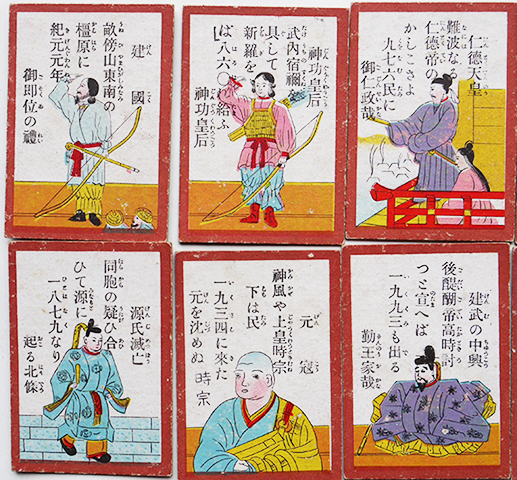 建國
畝傍山東南の
橿原に
紀元元年
御即位の禮
神功皇后
武內宿禰を
具して
新羅を
ば八六
給ふ
神功皇后
仁德天皇
難波なる
仁德帝の
かしこさよ
九七六民に
御仁政哉
源氏滅亡
同胞の疑ひ合
ひて源に
一八七九なり
起る北條
元冦
神風や上皇時宗
下は民
一九三四に來た
元を沈めぬ
時宗
建武の中興
後醍醐帝高時討
つと宣へば
一九九三も出る
勤王家哉